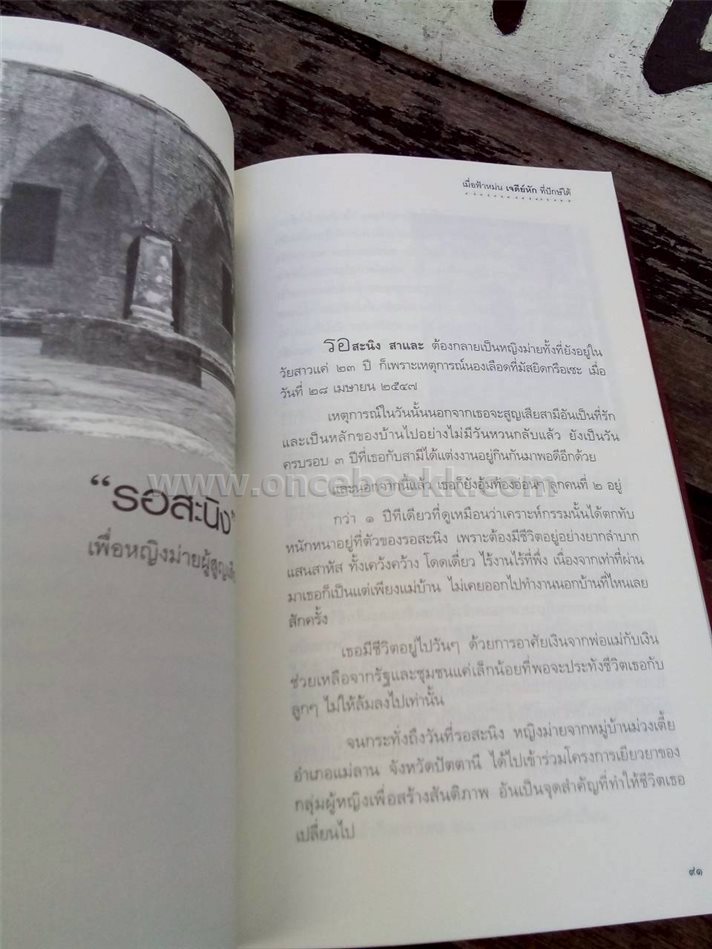 “รอสะนิง”
เพื่อหญิงม่ายผู้สูญเสีย
เมื่อฟ้าหม่น เจดีย์หัก ที่ปักษ์ใต้
รอสะนิง สาและ ต้องกลายเป็นหญิงม่ายทั้งที่ยังอยู่ใน
วัยสาวแค่ ๒๓ ปี ก็เพราะเหตุการณ์นองเลือดที่มัสยิดกรือเซะ เมื่อ
วันที่ ๒๘ เมษายน ๒๕๔๗
เหตุการณ์ในวันนั้นนอกจากเธอจะสูญเสียสามีอันเป็นที่รัก
และเป็นหลักของบ้านไปอย่างไม่มีวันหวนกลับแล้ว ยังเป็นวัน
ครบรอบ ๓ ปีที่เธอกับสามีได้แต่งงานอยู่กินกันมาพอดีอีกด้วย
www.oncebookk.com
และนอกจากนี้แล้ว เธอก็ยังอุ้มท้องอ่อนๆ ลูกคนที่ ๒ อยู่
กว่า ๑ ปีทีเดียวที่ดูเหมือนว่าเคราะห์กรรมนั้นได้ตกทับ
หนักหนาอยู่ที่ตัวของรอสะนิง เพราะต้องมีชีวิตอยู่อย่างยากลำบาก
แสนสาหัส ทั้งเคว้งคว้าง โดดเดี่ยว ไร้งานไร้ที่พึ่ง เนื่องจากเท่าที่ผ่าน
มาเธอก็เป็นแต่เพียงแม่บ้าน ไม่เคยออกไปทำงานนอกบ้านที่ไหนเลย
สักครั้ง
เธอมีชีวิตอยู่ไปวันๆ ด้วยการอาศัยเงินจากพ่อแม่กับเงิน
ช่วยเหลือจากรัฐและชุมชนแค่เล็กน้อยที่พอจะประทังชีวิตเธอกับ
ลูกๆ ไม่ให้ล้มลงไปเท่านั้น
จนกระทั่งถึงวันที่รอสะนิง หญิงม่ายจากหมู่บ้านม่วงเตี้ย
อำเภอแม่ลาน จังหวัดปัตตานี ได้ไปเข้าร่วมโครงการเยียวยาของ
กลุ่มผู้หญิงเพื่อสร้างสันติภาพ อันเป็นจุดสำคัญที่ทำให้ชีวิตเธอ
เปลี่ยนไป
๙๑